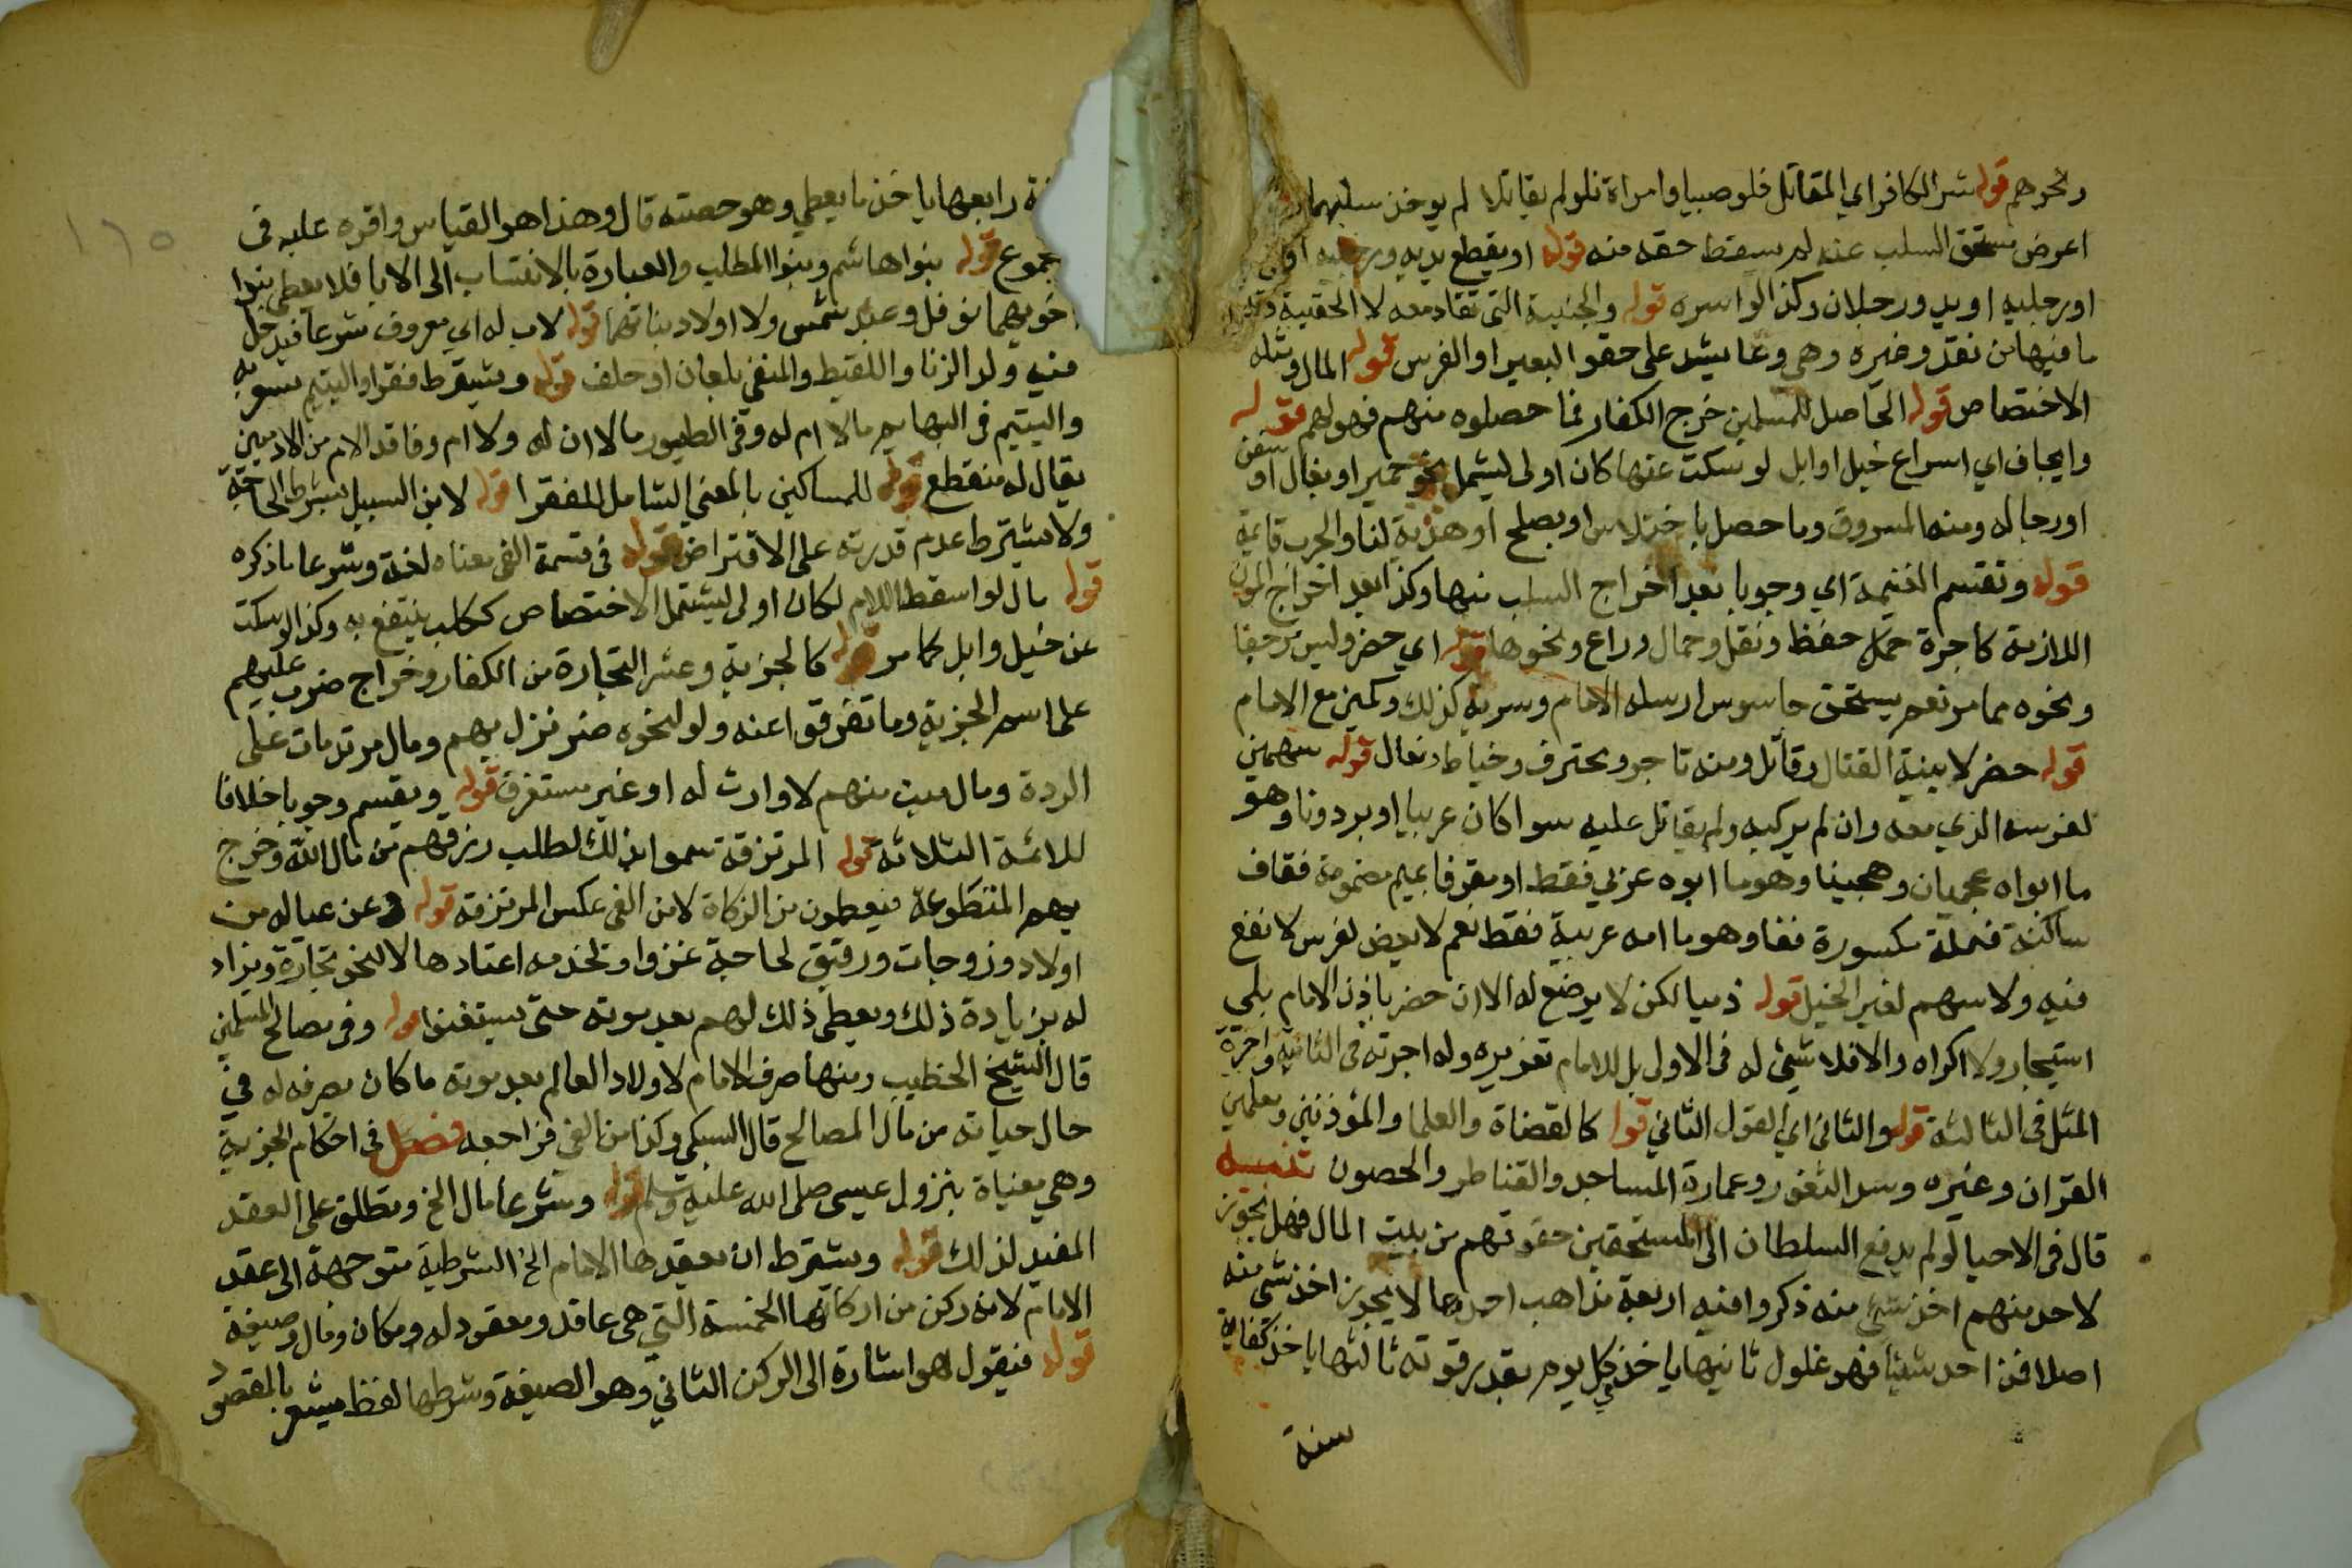 ونحوهم قوله شر الكافر اي المقاتل فلو صبيا وامراة فلو لم يقاتلا لم يوخذ سلبهما
اعرض مستحق السلب عنه لم يسقط حقه منه قوله او يقطع يديه ورجليه او
او رجليه او يد ورجلان وكذا لو اسره قوله والجنيبة التي تقاد معه لا الحقيبة
ما فيها من نقد وغيره وهي وعا يشد على حقو البعير او الفرس قوله المال ومثله
الاختصاص قوله الحاصل للمسلمين خرج الكفار فما حصلوه منهم فهو لهم قوله
وايجاف اي اسراع خيل او ابل لو سكت عنها كان اولى ليشمل نحو حمير او بغال او سفن
او رجاله ومنه المسروق وما حصل باختلاس او بصلح او هدية لنا والحرب قايمة
قوله وتقسم الغنيمة اي وجوبا بعد اخراج السلب منها وكذا بعد اخراج المؤن
اللازمة كاجرة حمال حفظ ونقل وحمال وراع ونحوها قوله اي حضر وليس مرجفا
ونحوه مما مر نعم يستحق جاسوس ارسله الامام وسرية كذلك وكمين مع الامام
قوله حضر لا بنية القتال وقاتل ومنه تاجر ومحترف وخياط وبقال قوله سهمين
لفرسه الذي معه وان لم يركبه ولم يقاتل عليه سوا كان عربيا او برذونا وهو
ما ابواه عجميان وهجينا وهو ما ابوه عربي فقط او مقرفا بميم مضمومة فقاف
ساكنة فمهملة مكسورة ففا وهو ما امه عربية فقط نعم لا يعطى لفرس لا نفع
فيه ولا سهم لغير الخيل قوله ذميا لكن لا يرضخ له الا ان حضر باذن الامام بلى
استيجار ولا اكراه والا فلا شيئ له في الاولى بل للامام تعزيره وله اجرته في الثانية واجرة
المثل في الثالثة قوله والثاني اي القول الثاني قوله كالقضاة والعلما والمؤذنين ومعلمين
القران وغيره وسد الثغور وعمارة المساجد والقناطر والحصون تنبيه
قال في الاحيا لو لم يدفع السلطان الى المستحقين حقوقهم من بيت المال فهل يجوز
لاحد منهم اخذ شئ منه ذكروا فيه اربعة مذاهب احدها لا يجوز اخذ شئ منه
اصلا فمن اخذ شيئا فهو غلول ثانيها ياخذ كل يوم بقدر قوته ثالثها ياخذ كفاية
سنة
رابعها ياخذ ما يعطي وهو حصته قال وهذا هو القياس واقره عليه في
قوله بنوا هاشم وبنوا المطلب والعبارة بالانتساب الى الابا فلا يعطى بنوا
اخويهما نوفل وعبد شمس ولا اولاد بناتهما قوله لاب له اي معروف شرعا فيدخل
فيه ولد الزنا واللقيط والمنفي بلعان او حلف قوله ويشترط فقر او اليتيم
واليتيم في البهايم ما لا ام له وفي الطيور ما لا ان له ولا ام وفاقد الام من الادميين
يقال له منقطع قوله للمساكين بالمعنى الشامل للفقرا قوله لابن السبيل بشرط الحاجة
ولا يشترط عدم قدرته على الاقتراض قوله في قسمة الفئ معناه لغة وشرعا ما ذكره
قوله مال لو اسقط اللام لكان اولى ليشمل الاختصاص ككلب ينتفع به وكذا لو سكت
عن خيل وابل كما مر قوله كالجزية وعشر التجارة من الكفار وخراج ضرب عليهم
على اسم الجزية وما تفرقوا عنه ولو لنحوه ضر نزل بهم ومال مرتد مات على
الردة ومال ميت منهم لا وارث له او غير مستغرق قوله ويقسم وجوبا خلافا
للائمة الثلاثة قوله المرتزقة سموا بذلك لطلب رزقهم من مال الله وخرج
بهم المتطوعة فيعطون من الزكاة لا من الفئ عكس المرتزقة قوله وعن عياله من
اولاد وزوجات ورقيق لحاجة غزو او لخدمه اعتادها لا لنحو تجارة ويزاد
له بزيادة ذلك ويعطى ذلك لهم بعد موته حتى يستغنوا قوله وفي مصالح المسلمين
قال الشيخ الخطيب ومنها صرف الامام لاولاد العالم بعد موته ما كان يصرفه له في
حال حياته من مال المصالح قال السبكي وكذا من الفئ فراجعه فصل في احكام الجزية
وهي مغياة بنزول عيسى صلى الله عليه وسلم قوله وشرعا مال الخ وتطلق على العقد
المفيد لذلك قوله ويشترط ان يعقدها الامام الخ الشرطية متوجهة الى عقد
الامام لانه ركن من اركانها الخمسة التي هي عاقد ومعقود له ومكان ومال وصيغة
قوله فيقول هو اشارة الى الركن الثاني وهو الصيغة وشرطها لفظ يشعر بالمقصود